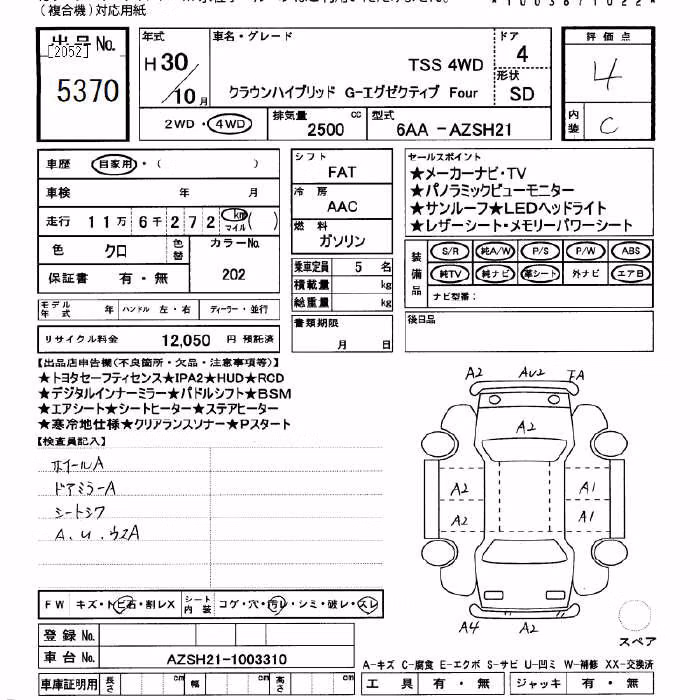 (複合機)対応用紙
出品No.
[2052]
5370
年式
H30/10月
車名・グレード
TSS 4WD
クラウンハイブリッド G-エグゼクティブ Four
ドア
4
形状
SD
評価点
4
内装
C
2WD・4WD
排気量
2500 cc
型式
6AA -AZSH21
車歴 自家用・( )
車検 年 月
走行 11万6千272 km マイル( )
色 クロ
色替
カラーNo.
202
保証書 有・無
モデル年式 年 ハンドル 左・右 ディーラー・並行
リサイクル料金 12,050 円 預託済
シフト
FAT
冷房
AAC
燃料
ガソリン
乗車定員 5 名
積載量 kg
総重量 kg
書類期限
月 日
セールスポイント
★メーカーナビ・TV
★パノラミックビューモニター
★サンルーフ★LEDヘッドライト
★レザーシート・メモリーパワーシート
装備品
S/R 純A/W P/S P/W ABS
純TV 純ナビ 革シート 外ナビ エアB
ナビ型番:
後日品
【出品店申告欄(不良箇所・欠品・注意事項等)】
★トヨタセーフティセンス★IPA2★HUD★RCD
★デジタルインナーミラー★パドルシフト★BSM
★エアシート★シートヒーター★ステアヒーター
★寒冷地仕様★クリアランスソナー★Pスタート
【検査員記入】
ホイールA
ドアミラーA
シートシワ
A.U.ウスA
A2 AU2 EA
A2
A2 A1
A2 A1
A4 A2
スペア
FW キズ・トビ石・割レX
シート内装 コゲ・穴・汚レ・シミ・破レ・スレ
登録No.
車台No. AZSH21-1003310
車庫証明用 長さ cm 幅 cm 高さ cm
A-キズ C-腐食 E-エクボ S-サビ U-凹ミ W-補修 XX-交換済
工具 有・無 ジャッキ 有・無